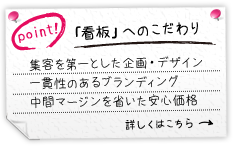 point!
「看板」へのこだわり
集客を第一とした企画・デザイン
一貫性のあるブランディング
中間マージンを省いた安心価格
詳しくはこちら →